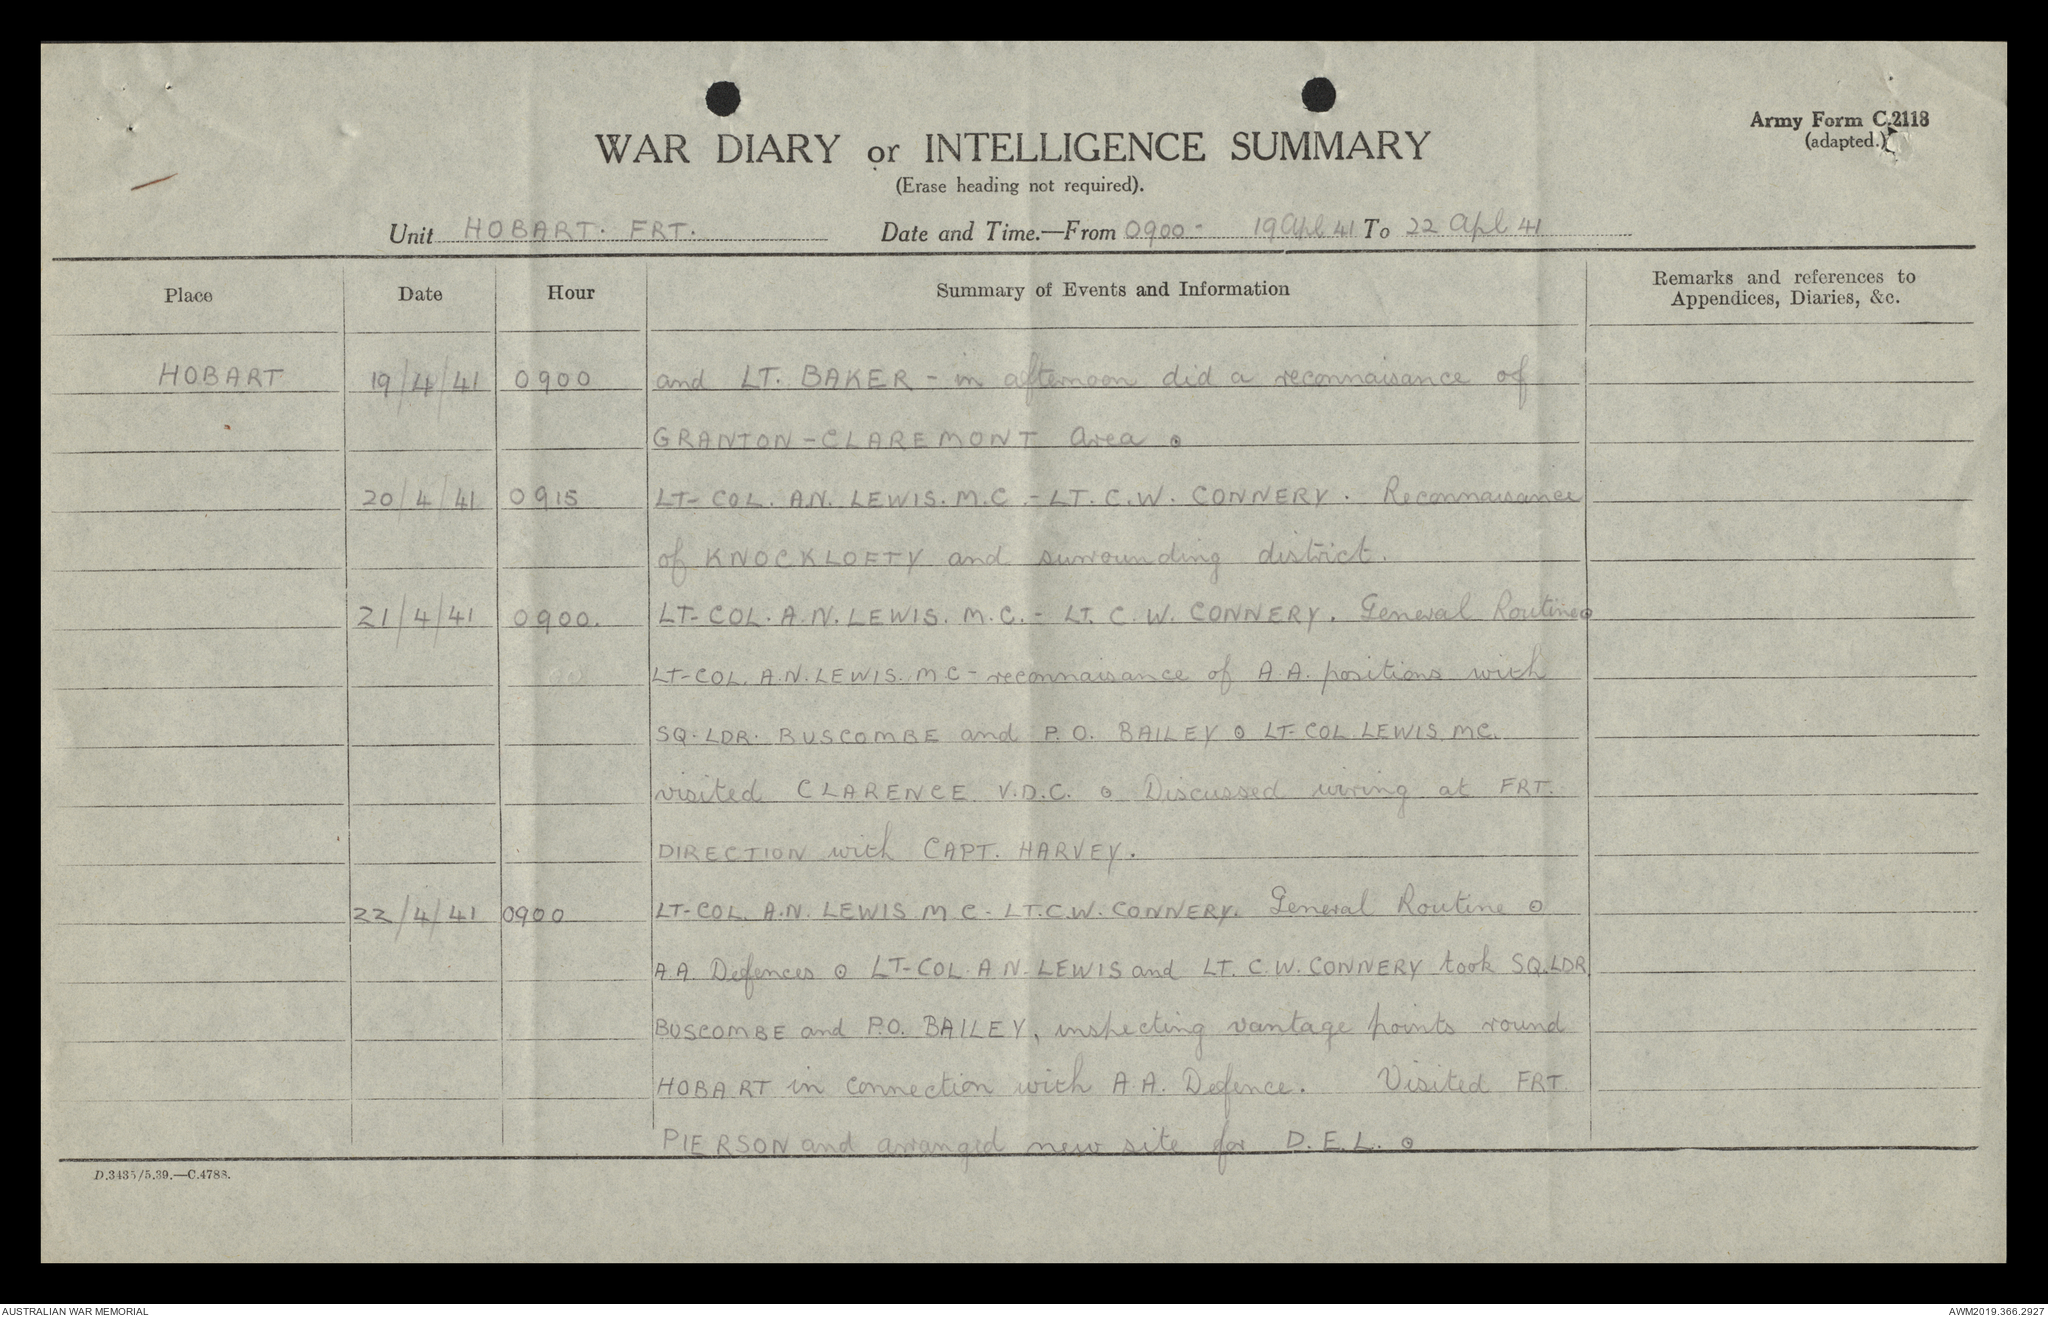 Army Form C.2118
(adapted.)
WAR DIARY or INTELLIGENCE SUMMARY
(Erase heading not required).
Unit HOBART. FRT. Date and Time.—From 0900 - 19 Apl 41 To 22 Apl 41
Place Date Hour Summary of Events and Information Remarks and references to Appendices, Diaries, &c.
HOBART 19/4/41 0900 and LT. BAKER - in afternoon did a reconnaisance of
GRANTON-CLAREMONT area ⊙
20/4/41 0915 LT-COL. A.N. LEWIS. M.C. - LT. C.W. CONNERY. Reconnaisance
of KNOCKLOFTY and surrounding district.
21/4/41 0900. LT-COL. A.N. LEWIS. M.C. - LT. C.W. CONNERY. General Routine ⊙
LT-COL. A.N. LEWIS. M C - reconnaisance of A.A. positions with
SQ. LDR. BUSCOMBE and P.O. BAILEY ⊙ LT-COL LEWIS. MC.
visited CLARENCE V.D.C. ⊙ Discussed wiring at FRT.
DIRECTION with CAPT. HARVEY.
22/4/41 0900 LT-COL. A.N. LEWIS M C - LT. C.W. CONNERY. General Routine ⊙
A.A. Defences ⊙ LT-COL. A N. LEWIS and LT. C.W. CONNERY took SQ.LDR
BUSCOMBE and P.O. BAILEY, inspecting vantage points round
HOBART in connection with A.A. Defence. Visited FRT.
PIERSON and arranged new site for D.E.L. ⊙
D.3435/5.39.—C.4788.
AUSTRALIAN WAR MEMORIAL
AWM2019.366.2927